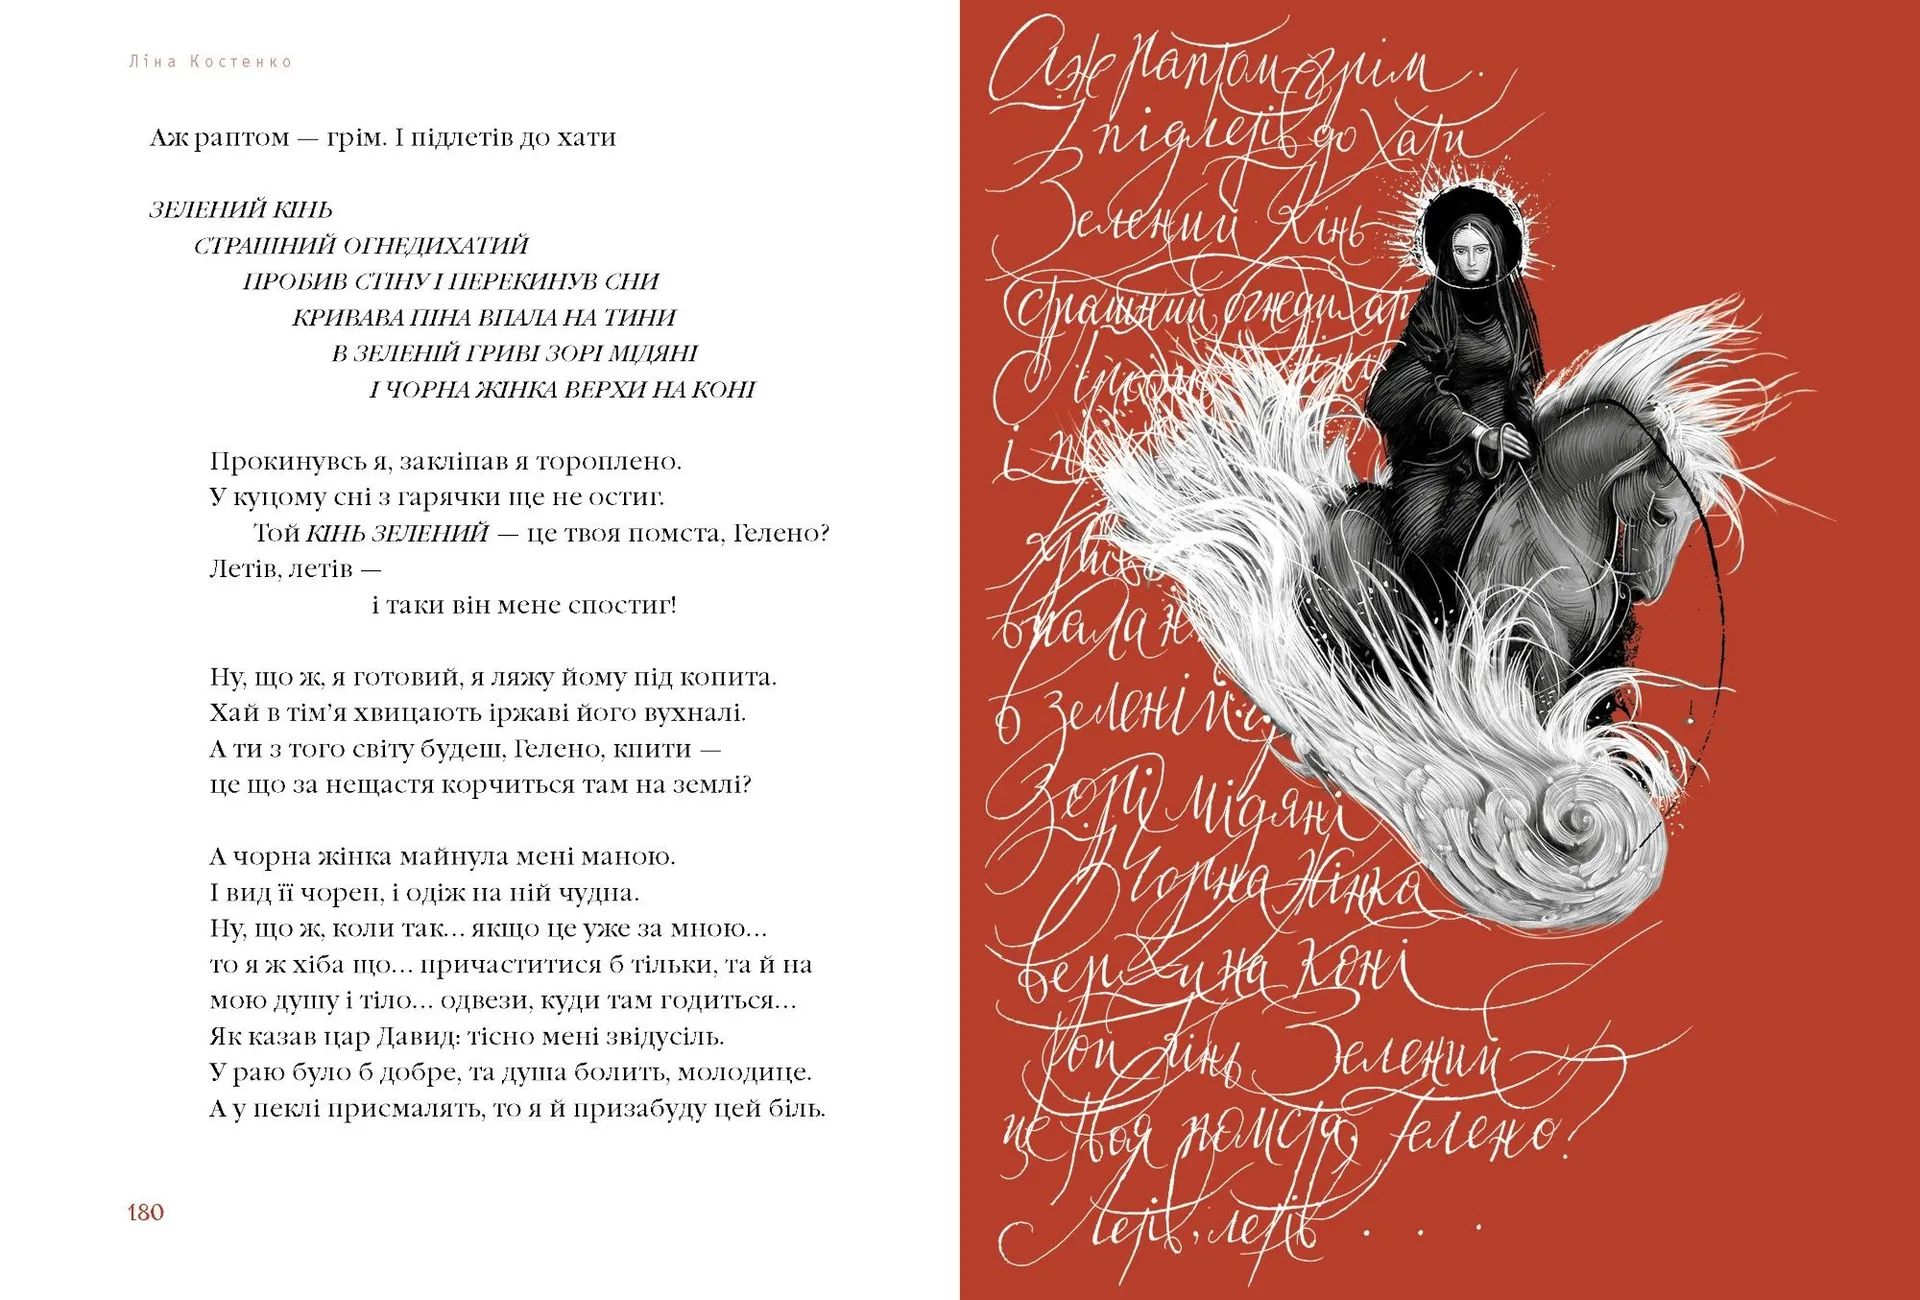 Ліна Костенко
Аж раптом — грім. І підлетів до хати
ЗЕЛЕНИЙ КІНЬ
СТРАШНИЙ ОГНЕДИХАТИЙ
ПРОБИВ СТІНУ І ПЕРЕКИНУВ СНИ
КРИВАВА ПІНА ВПАЛА НА ТИНИ
В ЗЕЛЕНІЙ ГРИВІ ЗОРІ МІДЯНІ
І ЧОРНА ЖІНКА ВЕРХИ НА КОНІ
Прокинувсь я, закліпав я тороплено.
У куцому сні з гарячки ще не остиг.
Той КІНЬ ЗЕЛЕНИЙ — це твоя помста, Гелено?
Летів, летів —
і таки він мене спостиг!
Ну, що ж, я готовий, я ляжу йому під копита.
Хай в тім’я хвицають іржаві його вухналі.
А ти з того світу будеш, Гелено, кпити —
це що за нещастя корчиться там на землі?
А чорна жінка майнула мені маною.
І вид її чорен, і одіж на ній чудна.
Ну, що ж, коли так... якщо це уже за мною...
то я ж хіба що... причаститися б тільки, та й на
мою душу і тіло... одвези, куди там годиться...
Як казав цар Давид: тісно мені звідусіль.
У раю було б добре, та душа болить, молодице.
А у пеклі присмалять, то я й призабуду цей біль.
180
Аж раптом — грім.
І підлетів до хати
Зелений Кінь
страшний огнедихат
і
впала н
в зеленій
Зорі мідяні
І Чорна Жінка
верхи на коні
Той Кінь Зелений
це твоя помста, Гелено?
Летів, летів . . .